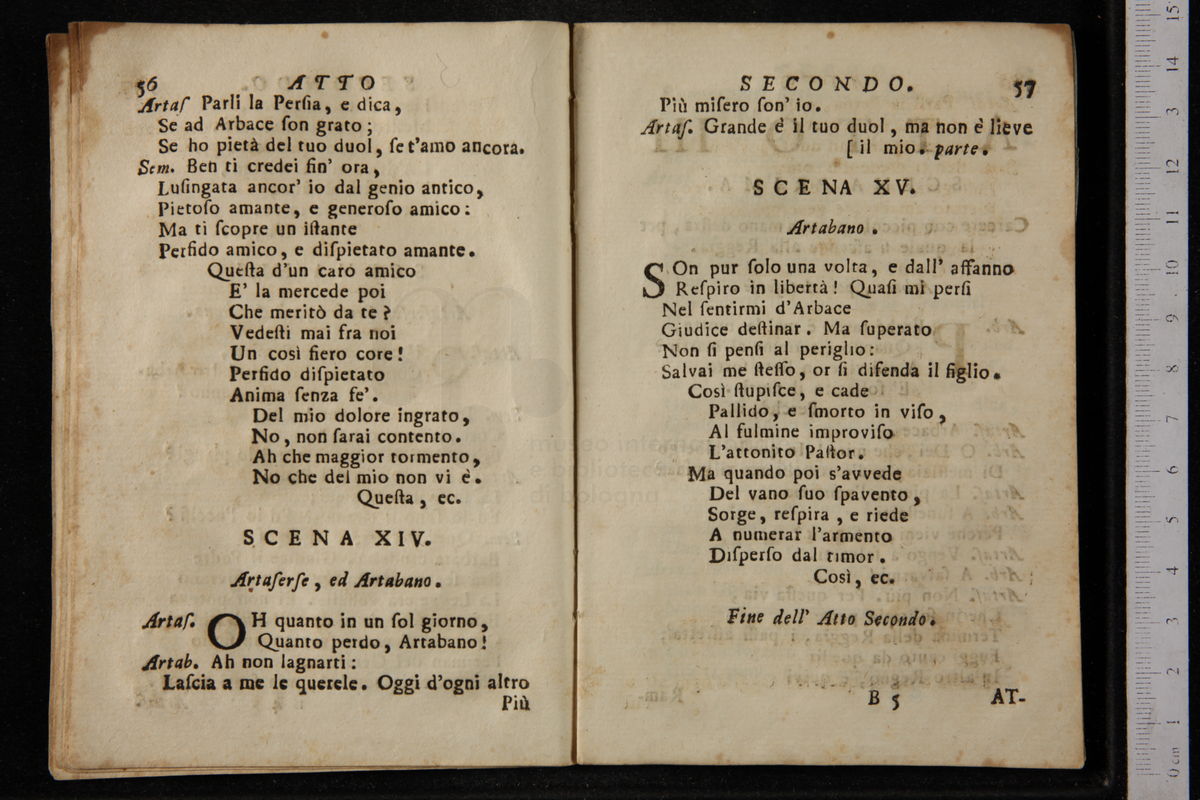 56 ATTO
Artaſ Parli la Perſia, e dica,
Se ad Arbace ſon grato;
Se ho pietà del tuo duol, ſe t'amo ancora.
Sem. Ben ti credei fin' ora,
Luſingata ancor' io dal genio antico,
Pietoſo amante, e generoſo amico:
Ma ti ſcopre un iſtante
Perfido amico, e diſpietato amante.
Queſta d'un caro amico
E' la mercede poi
Che meritò da te?
Vedeſti mai fra noi
Un così fiero core!
Perfido diſpietato
Anima ſenza fe'.
Del mio dolore ingrato,
No, non ſarai contento.
Ah che maggior tormento,
No che del mio non vi è.
Queſta, ec.
SCENA XIV.
Artaſerſe, ed Artabano.
Artaſ. OH quanto in un ſol giorno,
Quanto perdo, Artabano!
Artab. Ah non lagnarti:
Laſcia a me le querele. Oggi d'ogni altro
Più
SECONDO. 57
Più miſero ſon' io.
Artaſ. Grande è il tuo duol, ma non è lieve
[il mio. parte.
SCENA XV.
Artabano.
SOn pur ſolo una volta, e dall' affanno
Reſpiro in libertà! Quaſi mi perſi
Nel ſentirmi d'Arbace
Giudice deſtinar. Ma ſuperato
Non ſi penſi al periglio:
Salvai me ſteſſo, or ſi difenda il figlio.
Così ſtupiſce, e cade
Pallido, e ſmorto in viſo,
Al fulmine improviſo
L'attonito Paſtor.
Ma quando poi s'avvede
Del vano ſuo ſpavento,
Sorge, reſpira, e riede
A numerar l'armento
Diſperſo dal timor.
Così, ec.
Fine dell' Atto Secondo.
B 5 AT-
museo
e biblioteca
di bologna
0 cm 1 2 3 4 5 6 7 8 9 10 11 12 13 14 15